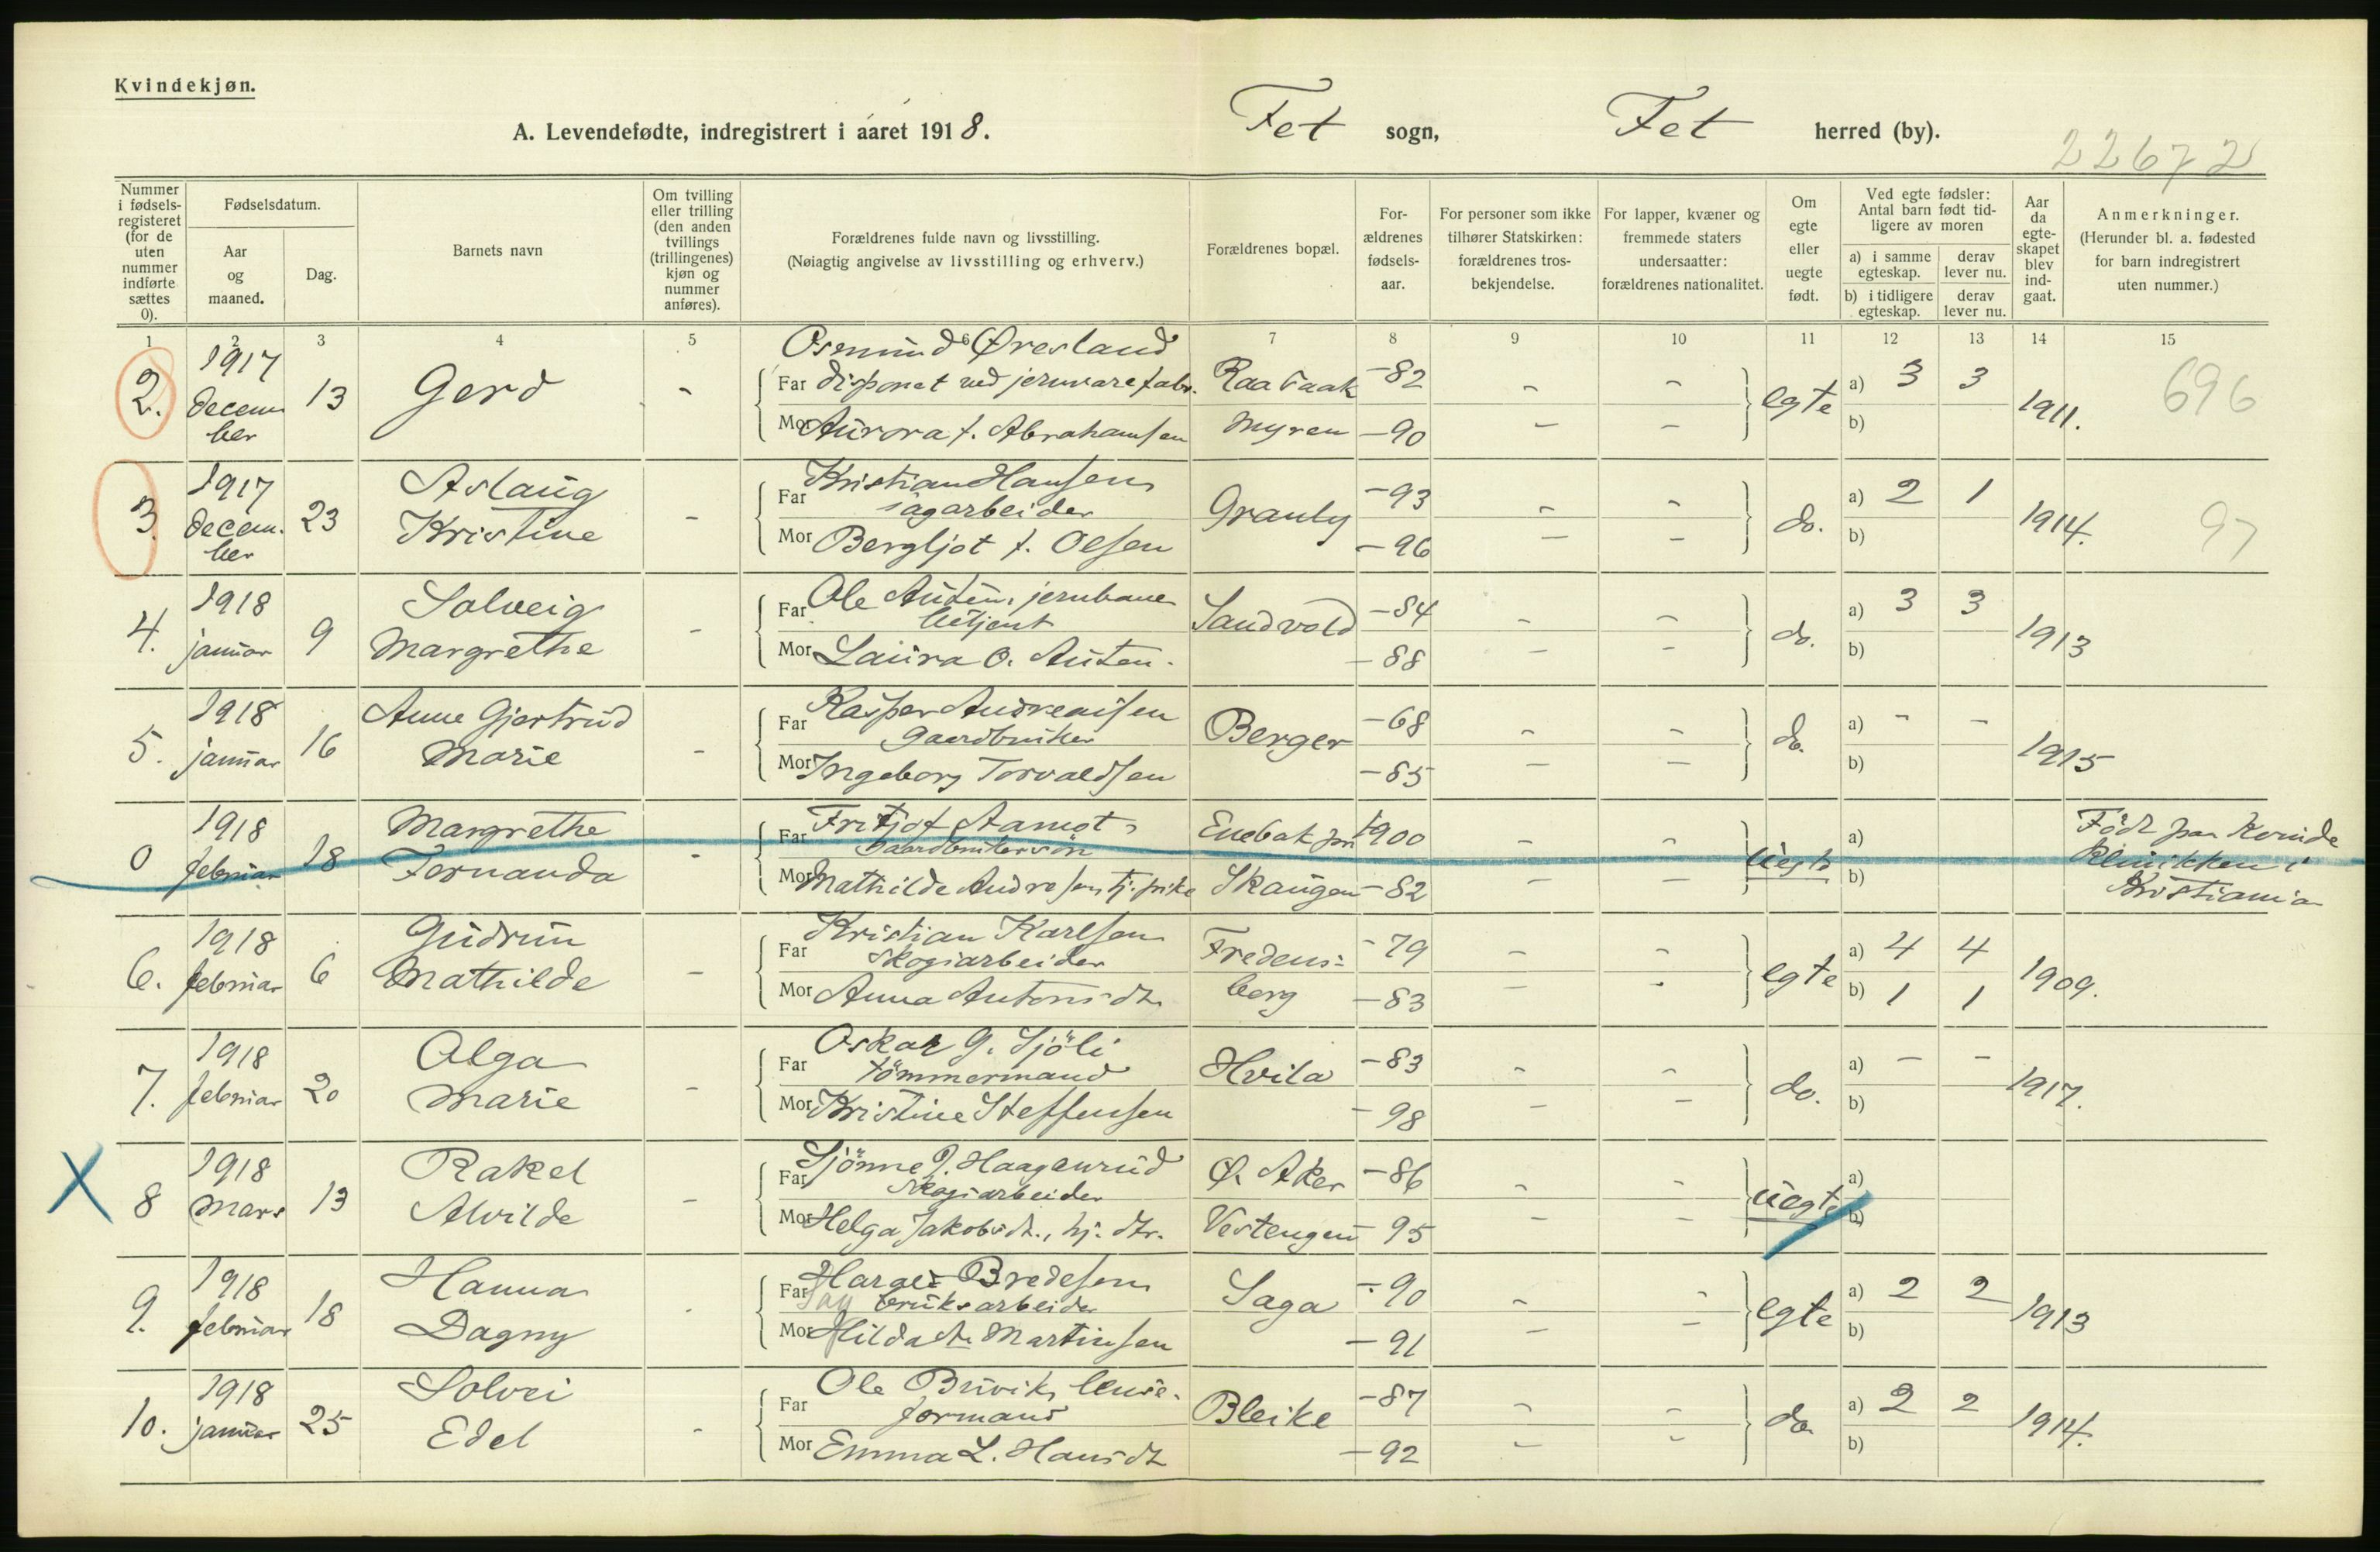 Kvindekjøn.
A. Levendefødte, indregistrert i aaret 1918.
Fet sogn, Fet herred (by).
22672
Nummer i fødsels-registeret (for de uten nummer indførte sættes 0).
Fødselsdatum.
Aar og maaned.
Dag.
Barnets navn
Om tvilling eller trilling (den anden tvillings (trillingenes) kjøn og nummer anføres).
Forældrenes fulde navn og livsstilling.
(Nøiagtig angivelse av livsstilling og erhverv.)
Forældrenes bopæl.
For-ældrenes fødsels-aar.
For personer som ikke tilhører Statskirken: forældrenes tros-bekjendelse.
For lapper, kvæner og fremmede staters undersaatter: forældrenes nationalitet.
Om egte eller uegte født.
Ved egte fødsler: Antal barn født tid-ligere av moren
a) i samme egteskap.
derav lever nu.
b) i tidligere egteskap.
derav lever nu.
Aar da egte-skapet blev ind-gaat.
Anmerkninger.
(Herunder bl. a. fødested for barn indregistrert uten nummer.)
1 2 3 4 5 6 7 8 9 10 11 12 13 14 15
2. 1917 december 13 Gerd - Osmund Øresland
Far disponet ved jernvarefabr. Raa Faak -82 - - egte a) 3 3 1911. 696
Mor Aurora f. Abrahamsen Myren -90 - - b)
3. 1917 december 23 Aslaug Kristine - Far Kristian Hansen sagarbeider Granly -93 - - do. a) 2 1 1914. 97
Mor Bergljot f. Olsen -96 - - b)
4. 1918 januar 9 Solveig Margrethe - Far Ole Auten, jernbane betjent Sandvold -84 - - do. a) 3 3 1913
Mor Laura O. Auten. -88 - - b)
5. 1918 januar 16 Anne Gjertrud Marie - Far Kasper Andreassen Gaardbruker Berger -68 - - do. a) - - 1915
Mor Ingeborg Torvaldsen -85 - - b)
0 1918 februar 18 Margrethe Fernanda - Far Fritjof Aamot Gaardbrukersøn Enebak 1900 - - uegte a) Født paa Kvinde
Mor Mathilde Andresen Skaugen -82 - - b) klinikken i Kristiania
6. 1918 februar 6 Gudrun Mathilde - Far Kristian Karlsen Skogsarbeider Fredens- -79 - - egte a) 4 4 1909.
Mor Anna Antonsdt. berg -83 - - b) 1 1
7. 1918 februar 20 Olga Marie - Far Oskar G. Sjöli tömmermand Hvila -83 - - do. a) - - 1917.
Mor Kristine Steffensen -98 - - b)
X 8 1918 mars 13 Rakel Alvilde - Far Sjönne J. Haagenrud Skogsarbeider Ø. Aker -86 - - uegte a)
Mor Helga Jakobsdt., hj. dtr. Vestengen -95 - - b)
9. 1918 februar 18 Hanna Dagny - Far Bredesen Sag bruksarbeider Saga -90 - - egte a) 2 2 1913
Mor Hilda Martinsen -91 - - b)
10. 1918 januar 25 Solvei Edel - Far Ole Bruvik, lense- formand Bleike -87 - - do. a) 2 2 1914.
Mor Emma L. Hansdt -92 - - b)